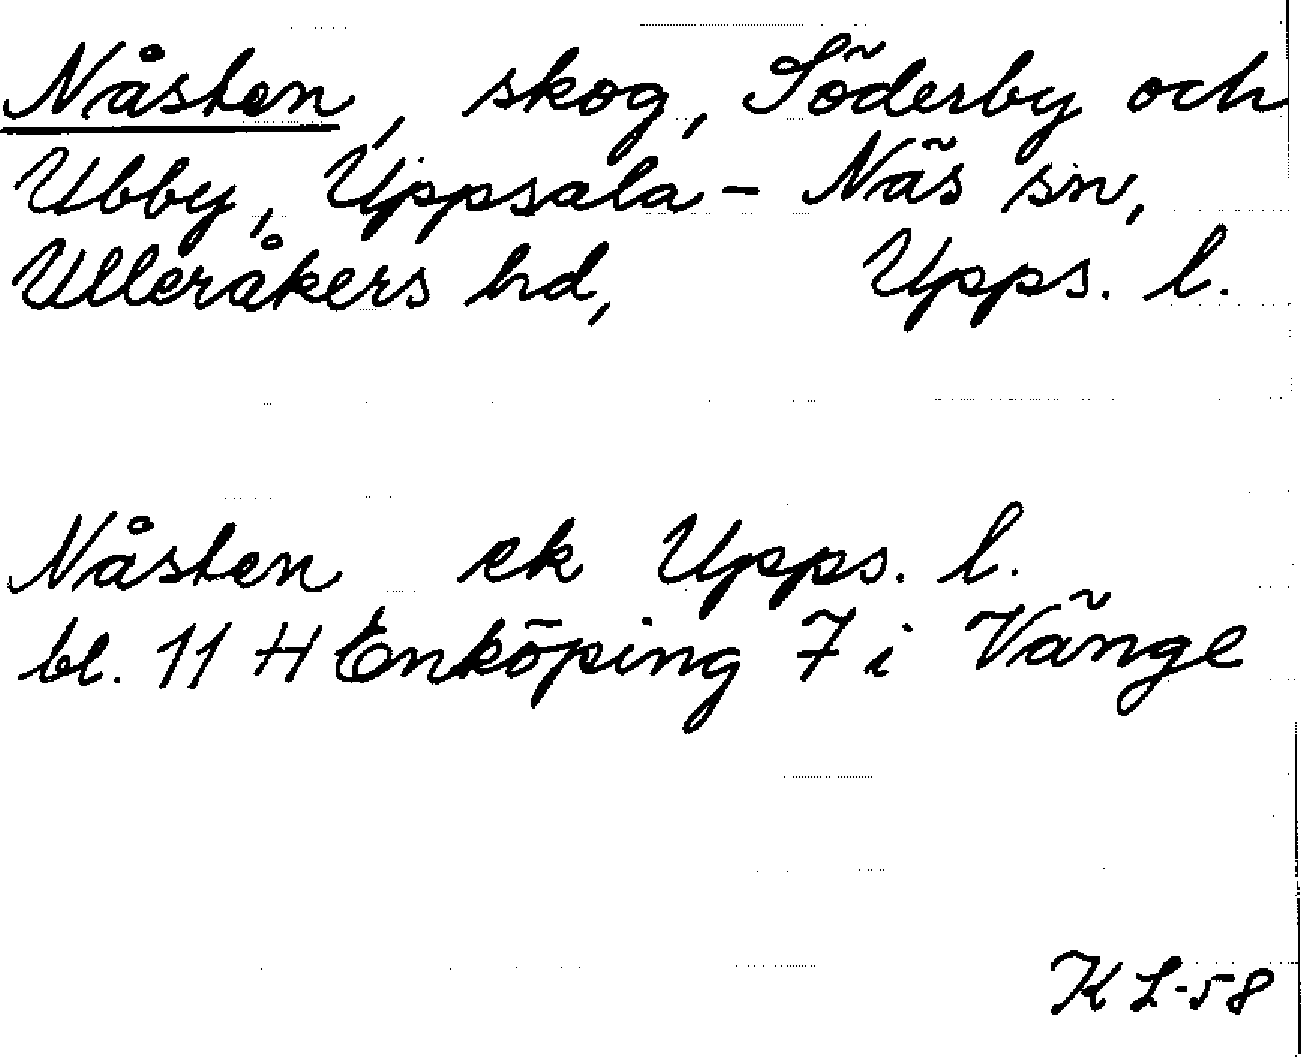 Nåsten, skog, Söderby och
Ubby, Uppsala - Näs sn,
Ulleråkers hd, Upps. l.
Nåsten ek Upps. l.
bl. 11 H Enköping 7 i Vänge
KL-58